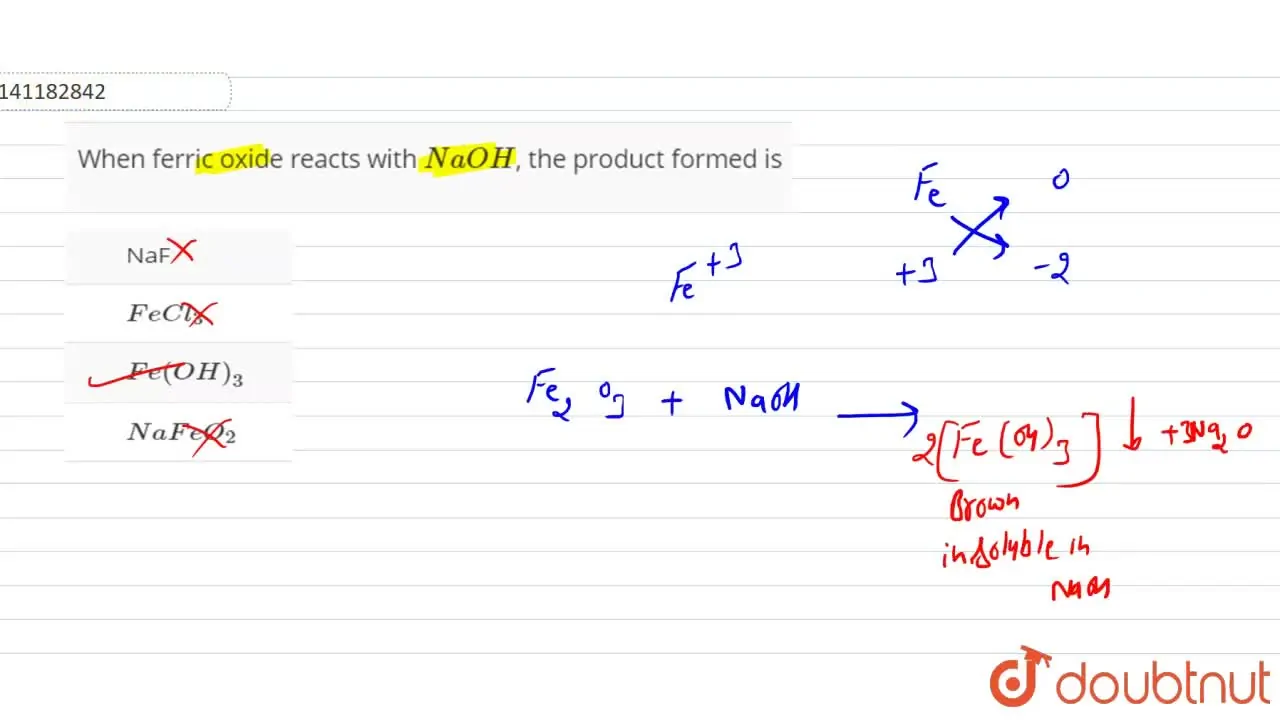 141182842
When ferric oxide reacts with NaOH, the product formed is
NaF
FeCl₃
Fe(OH)₃
NaFeO₂
Fe⁺³
Fe O
+3 -2
Fe₂ O₃ + NaOH
2[Fe(OH)₃] ↓ +3Na₂O
Brown
insoluble in
NaOH
doubtnut